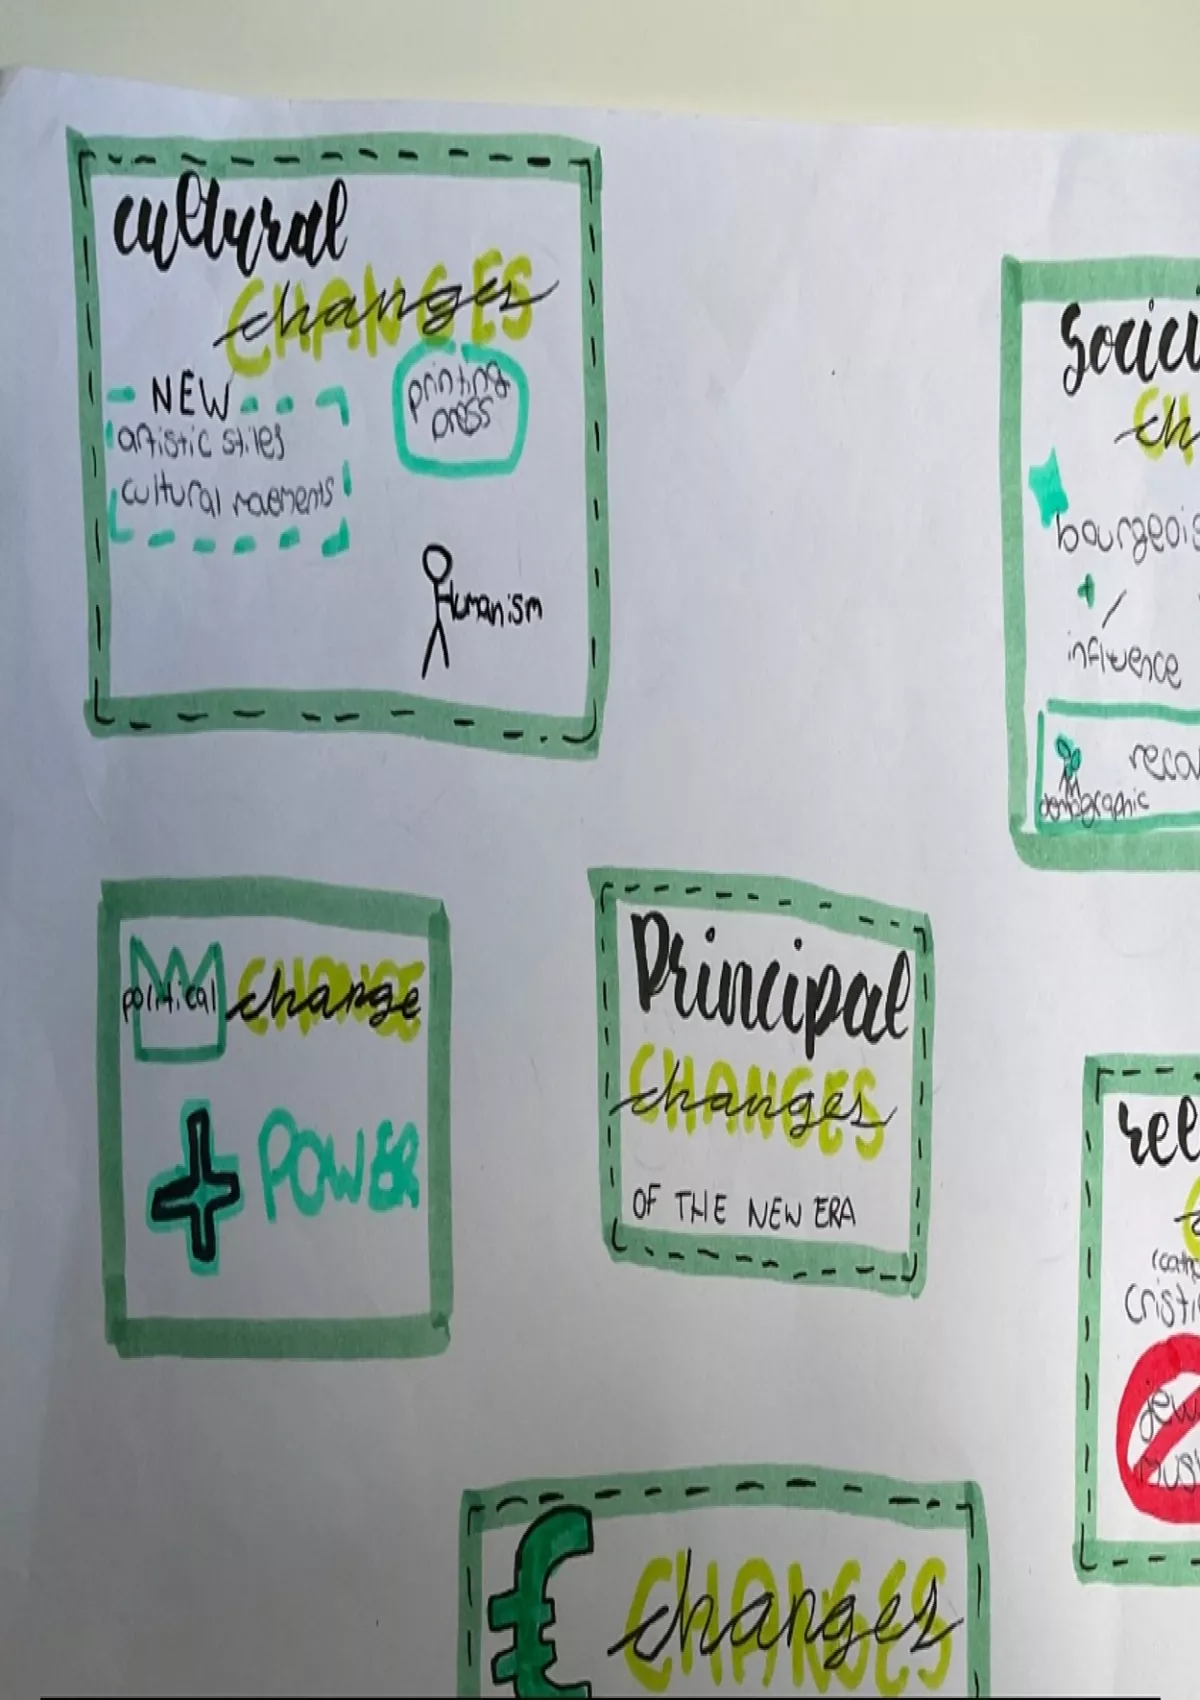 cultural
CHANGES
changes
NEW
artistic stiles
cultural
printing
press
Humanism
bourgeois
+
influence
demographic
political
CHANGE
change
+ POWER
Principal
CHANGES
changes
OF THE NEW ERA
rel
cristi
jew
mus
€ CHANGES
changes